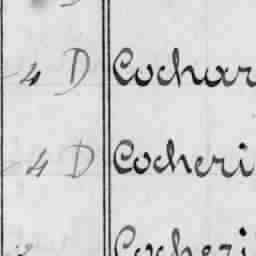 4 D Cochar
4 D Cocheri
Cocheri